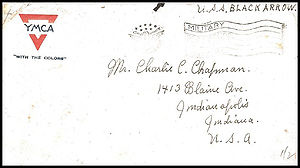 U.S.S. BLACK ARROW
MILITARY
YMCA
"WITH THE COLORS"
Mr. Charlie C. Chapman.
1413 Blaine Ave.
Indianapolis
Indiana.
U.S.A.
1/2